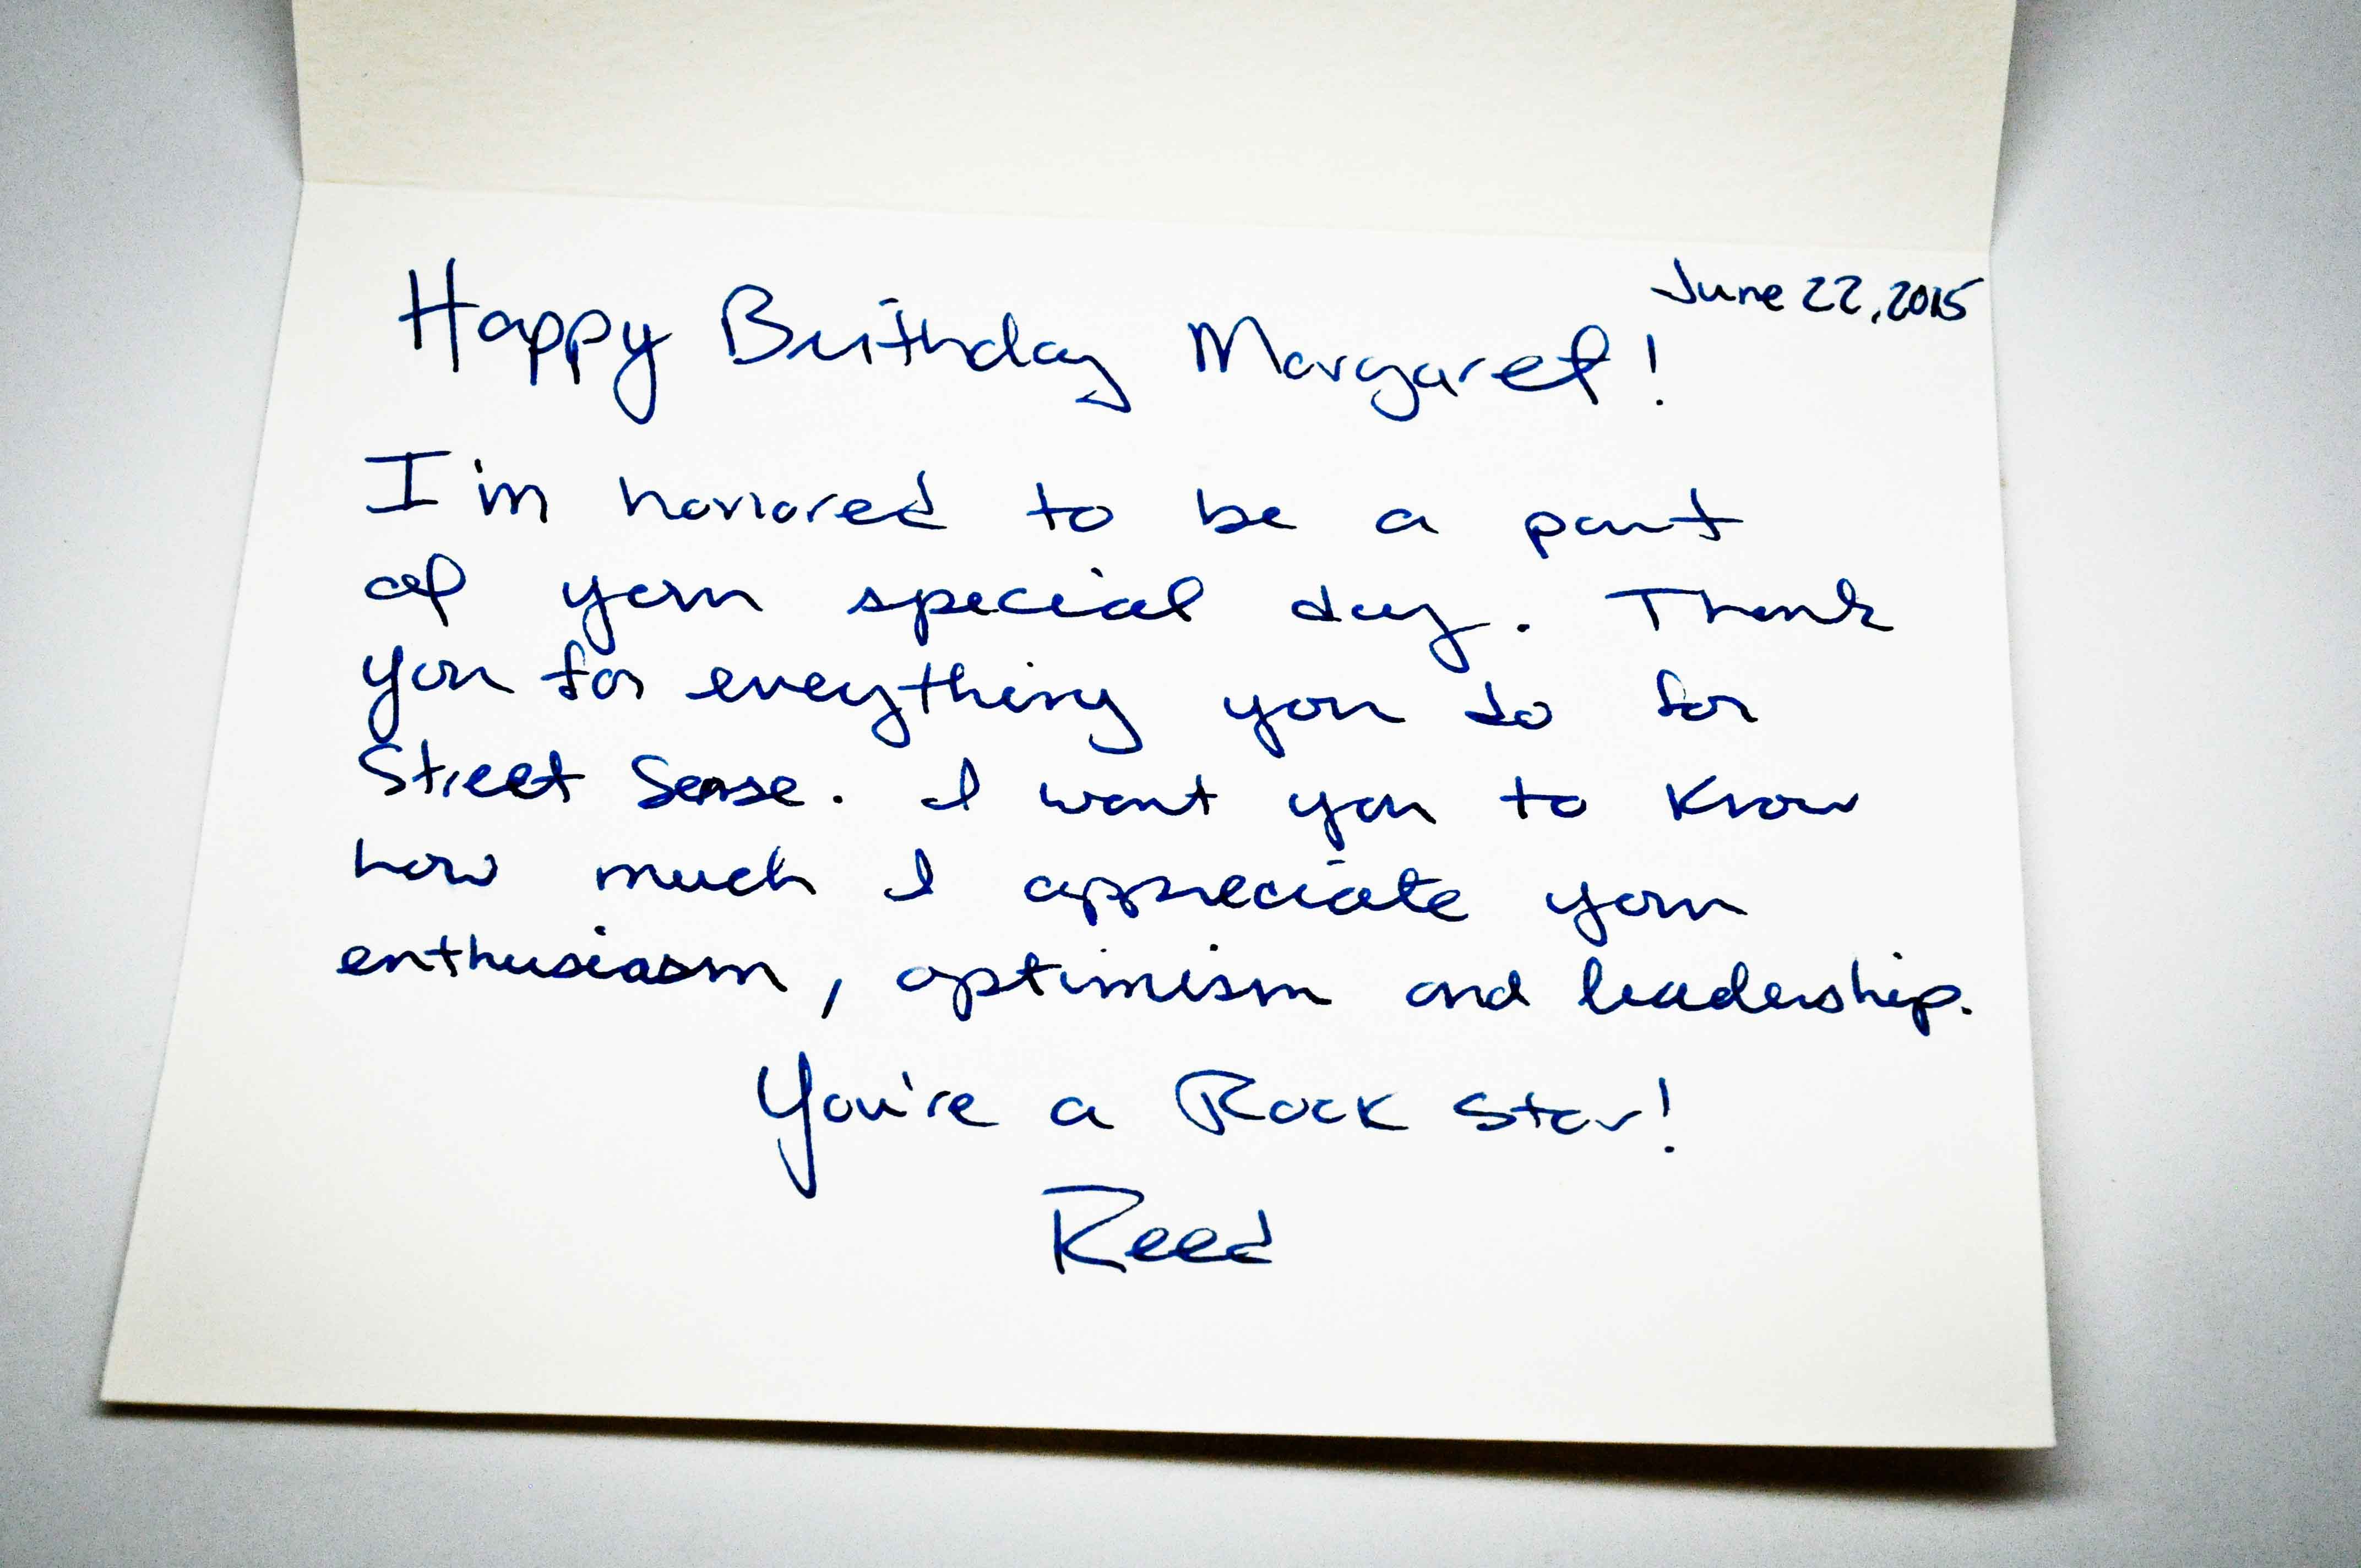 June 22, 2015
Happy Birthday Margaret!
I'm honored to be a part
of your special day. Thank
you for everything you do for
Street Sense. I want you to know
how much I appreciate your
enthusiasm, optimism and leadership.
You're a Rock Star!
Reed